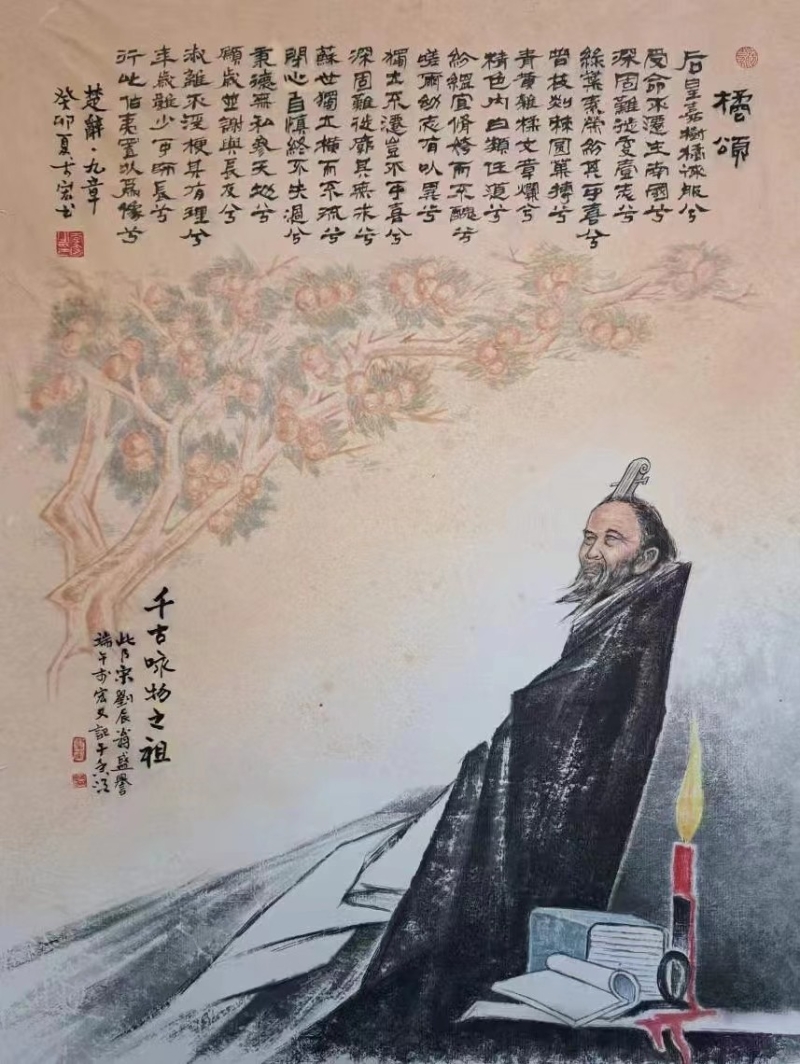 橘頌
后皇嘉樹橘徠服兮
受命不遷生南國兮
深固難徙更壹志兮
綠葉素榮紛其可喜兮
曾枝剡棘圓菓摶兮
青黃雜糅文章爛兮
精色内白類任道兮
紛緼宜脩姱而不醜兮
嗟爾幼志有以異兮
獨立不遷豈不可喜兮
深固難徙廓其無求兮
蘇世獨立橫而不流兮
閉心自慎終不失過兮
秉德無私參天地兮
願歲並謝與長友兮
淑離不淫梗其有理兮
年歲雖少可師長兮
行比伯夷置以為像兮
楚辭·九章
癸卯夏方宏書
千古咏物之祖
此乃宋劉辰翁盛譽
端午前宏文記于